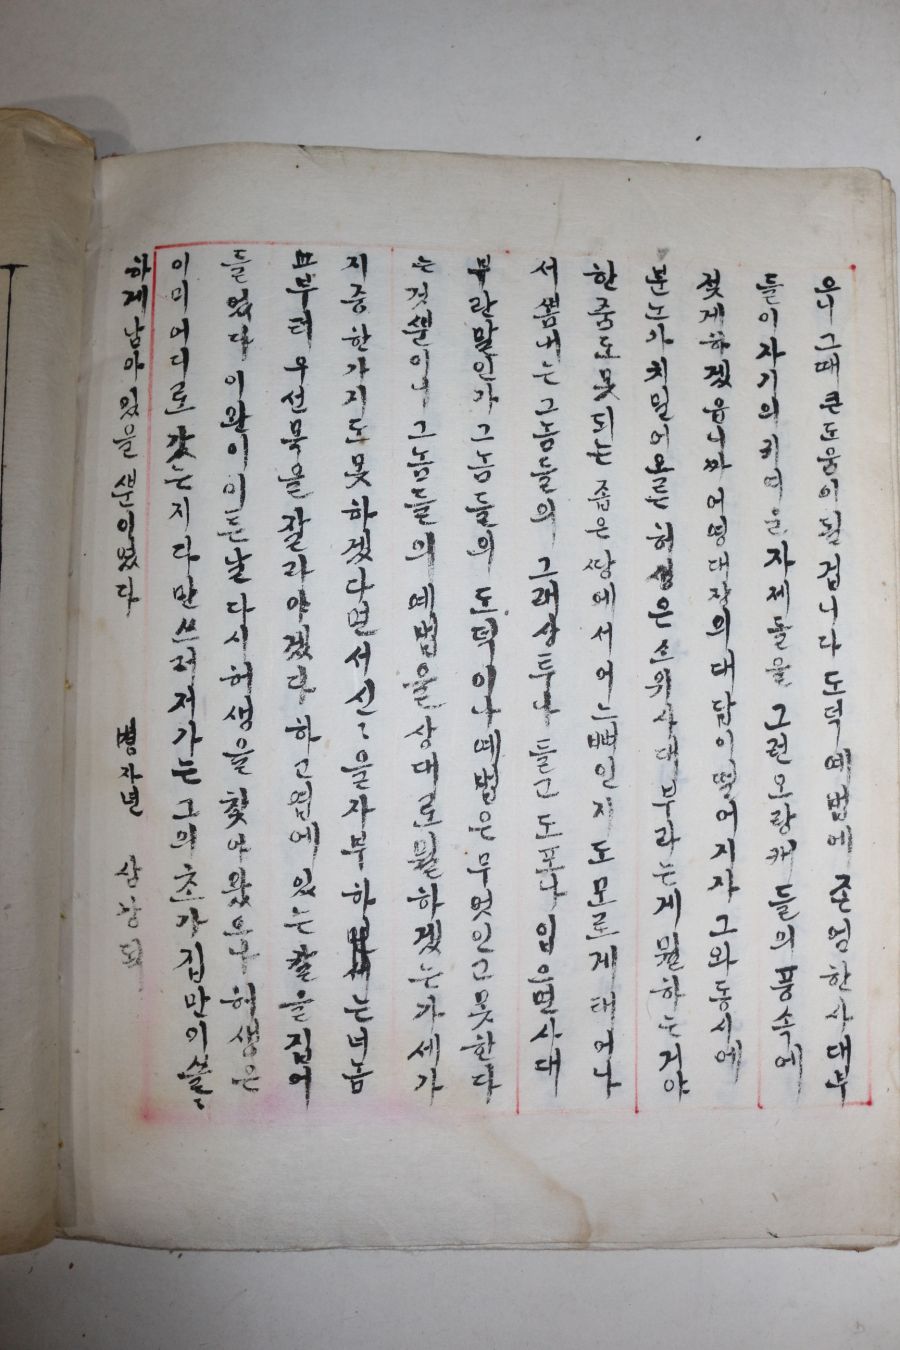 으니 그때 큰 도움이 될 겁니다 도덕 예법에 존엄한 사대부
들이 자기의 귀여운 자제들을 그런 오랑캐들의 풍속에
젖게 하겠읍니까 어영대장의 대답이 떨어지자 그와 동시에
분노가 치밀어 오른 허생은 소위 사대부라는게 뭘 하는 거야
한 줌도 못되는 좁은 땅에서 어느때인지도 모르게 태어나
서 뽐내는 그놈들의 그래 상투나 틀고 도포나 입으면 사대
부란 말인가 그놈들의 도덕이나 예법은 무엇인고 못한다
는 것뿐이니 그놈들의 예법을 상대로 뭘 하겠는가 세가
지중 한가지도 못하겠다면서 신신을 자부하는 너놈
부터 우선 목을 잘라야겠다 하고 옆에 있는 칼을 집어
들었다 이완이 이튿날 다시 허생을 찾아왔으나 허생은
이미 어디로 갔는지 다만 쓰러져가는 그의 초가집만이 쓸쓸
하게 남아 있을 뿐이였다 병자년